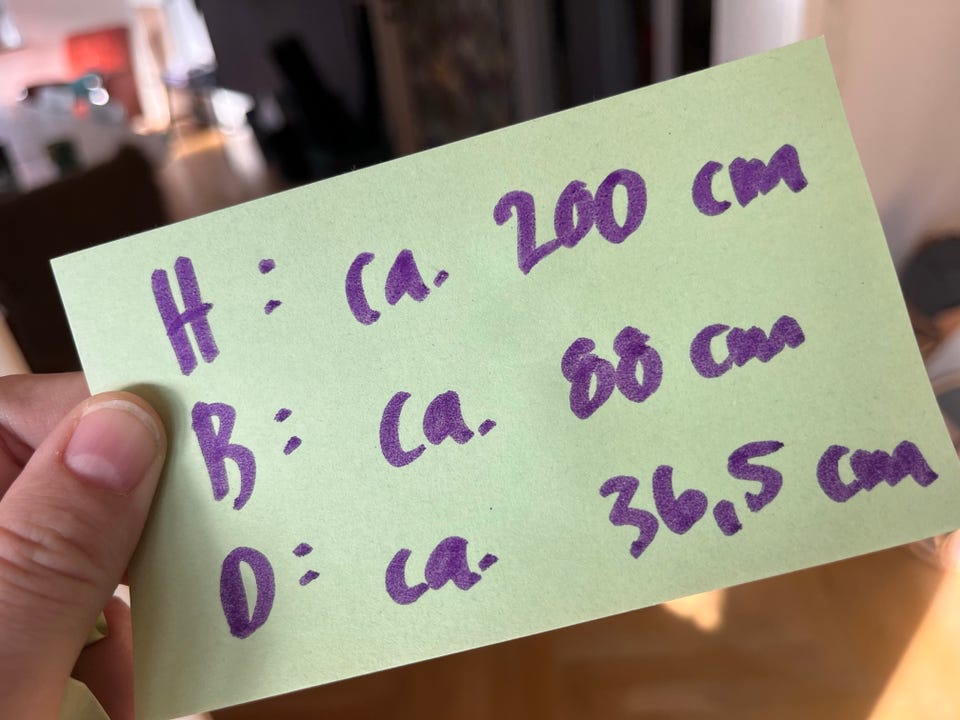 H: ca. 200 cm
B: ca. 88 cm
D: ca. 36,5 cm